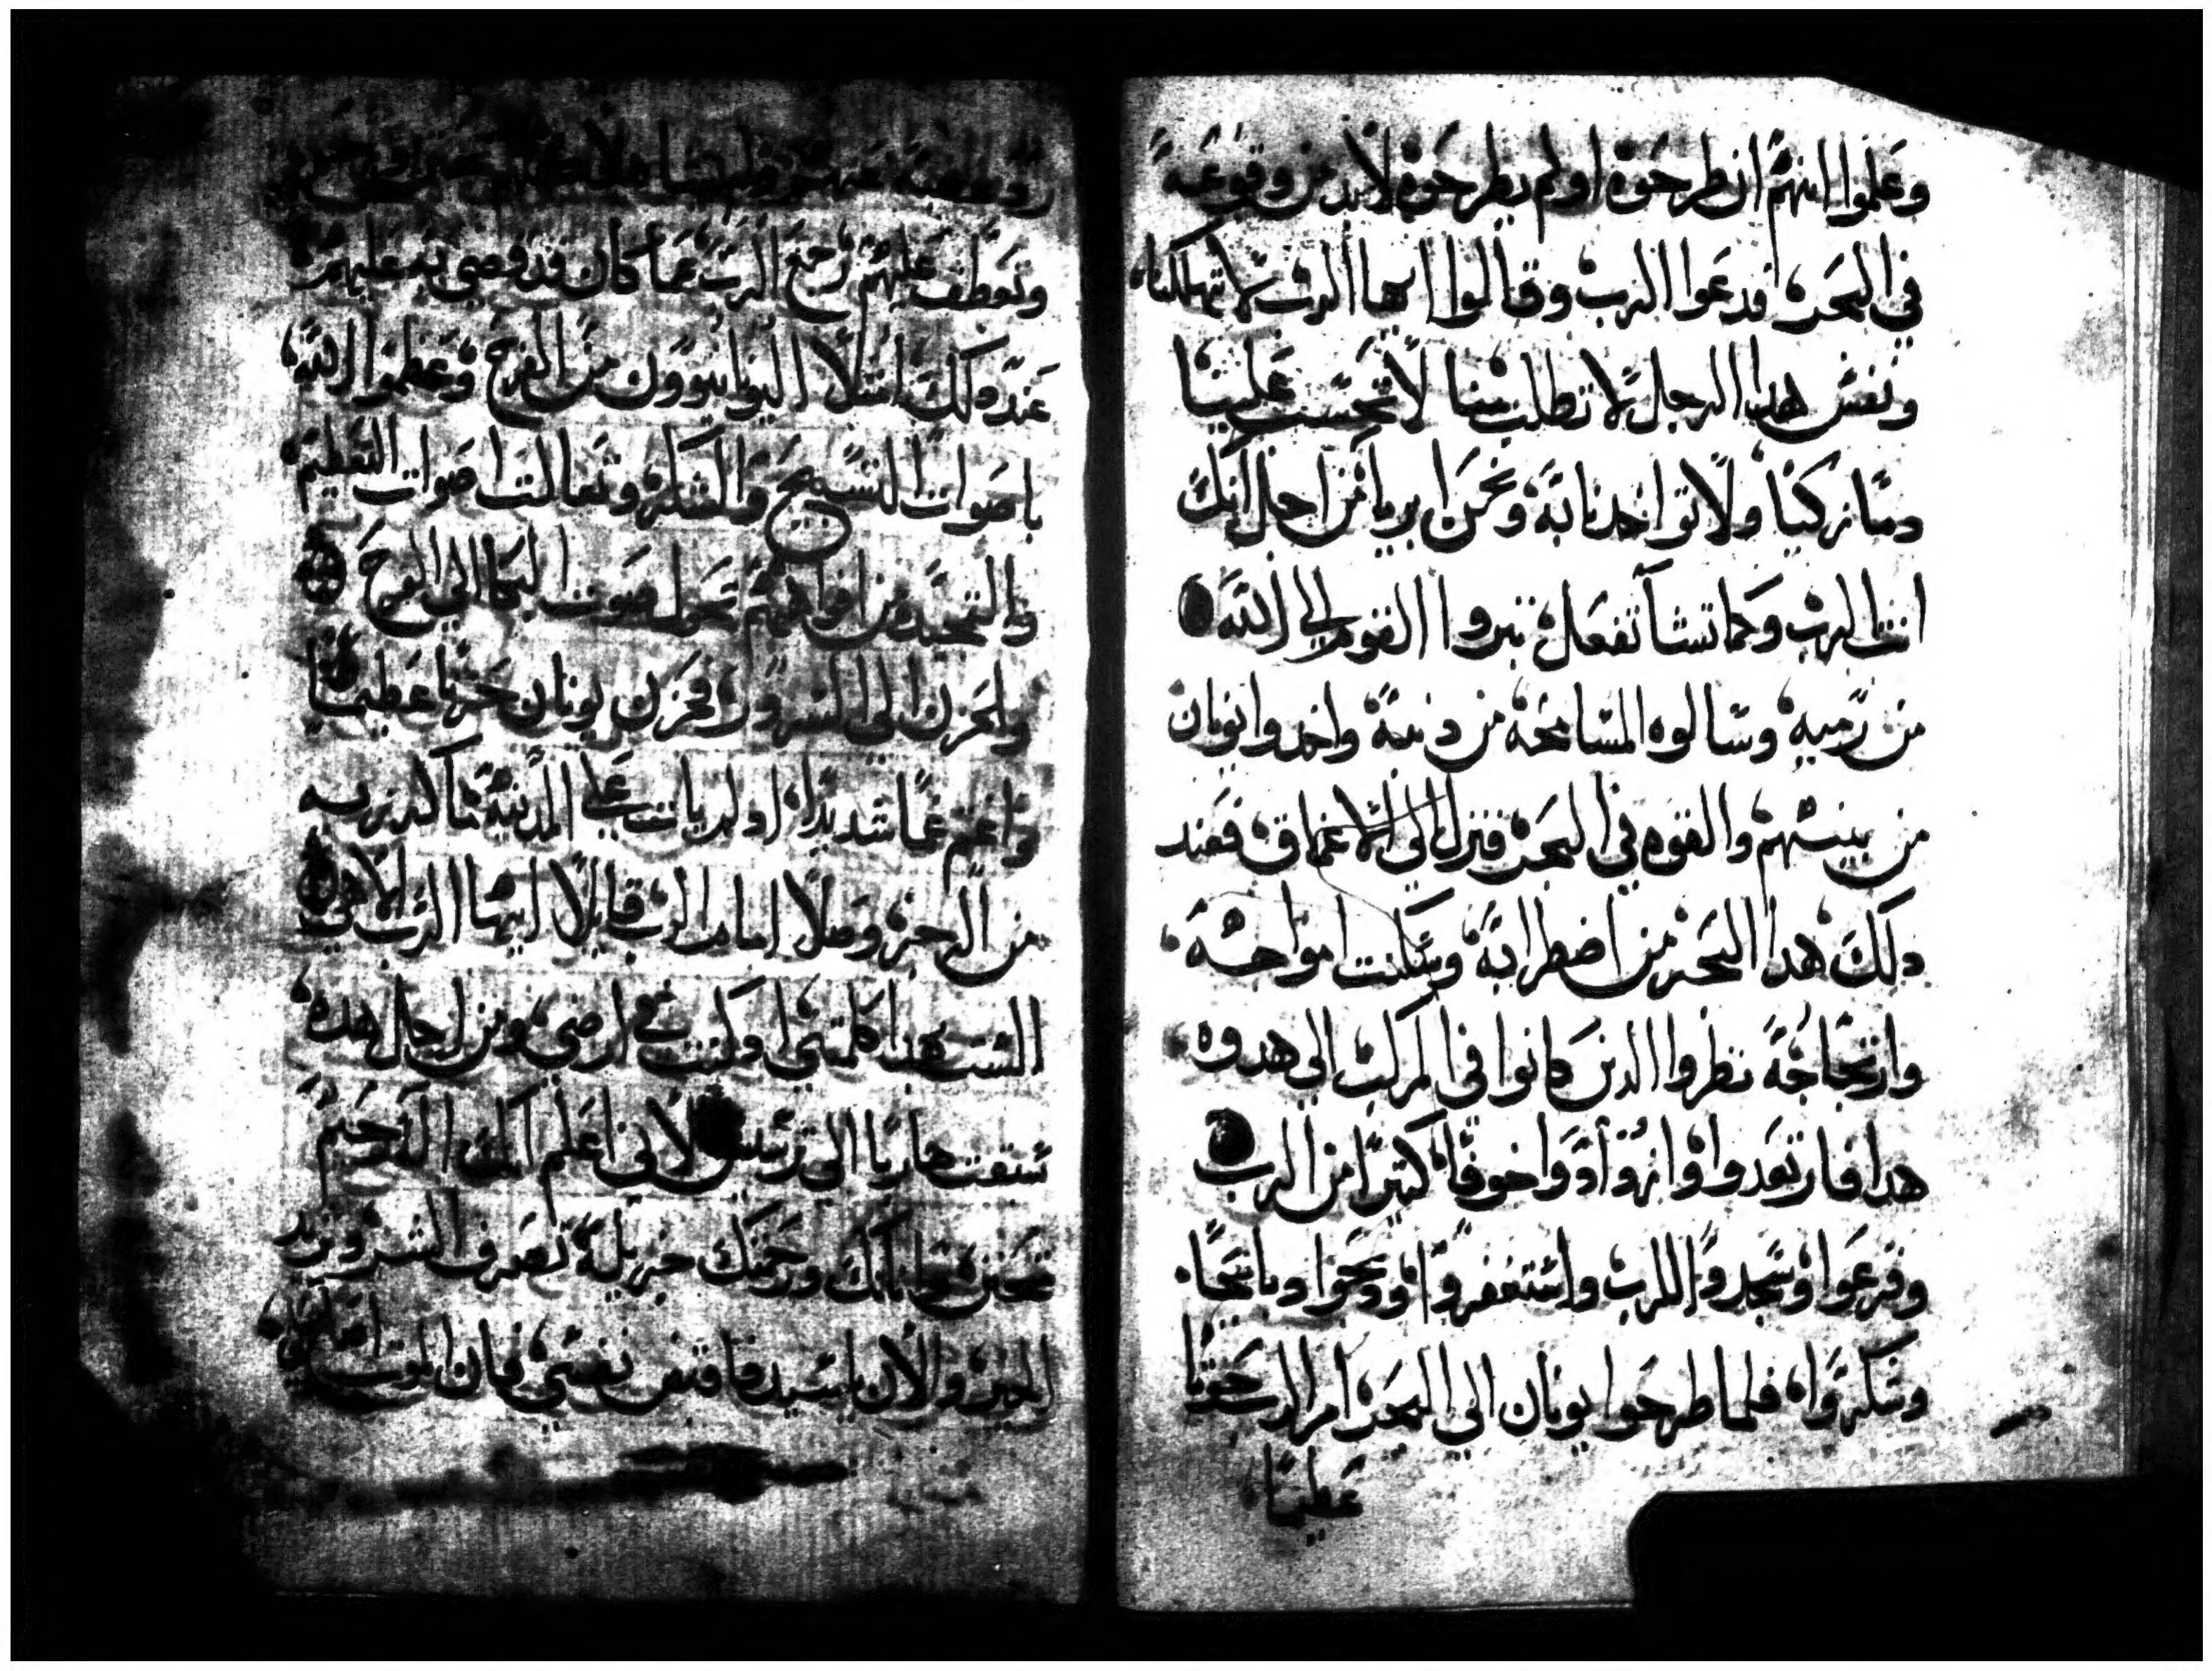 وعلموا انهم ان طرحوه اولم يطرحوه لابد من وقوعه
في البحر، فدعوا الرب وقالوا ايها الرب لا تهلكنا،
ونفس هدا الرجل لا تطلب منا لا تحسب علينا
دما زكيا ولا تواخدنا به ونحن ابريا من اجل انك
انت الرب وكما تشا تفعل تبروا القوم الي الله
من رميه وسالوه المسامحه من دنبه واخدوا يونان
من بينهم والقوه في البحر فنزل الي الاعماق فعند
دلك هدا البحر من اضطرابه وسكنت امواجه،
وارتجاجه نظروا الدين كانوا في المركب الي هدوه
هدا فارتعدوا وازدادوا خوفا كتيرا من الرب
وفزعوا وسجدوا للرب واستغفروا ودبحوا دبايحا.
وشكروا، فلما طرحوا يونان الي البحر امر الرب حوتا
عظيما
وتعطف عليهم رجع الرب عما كان قد قضي به عليهم
عند دلك امتلا النينوانيون من الفرح وعظموا الله
باصوات التسبيح والشكر وتعالت اصوات التعظيم
والتمجيد من افواههم تحول صوت البكا الي الفرح
والحزن الي السرور، فحزن يونان حزنا عظيما
واغتم غما شديدا، اد لم يات علي المدينة ما كرز به
من الرجز وصلا امام الرب قايلا ايها الرب الاهي
الست هدا كلمتي اد كنت في ارضي ومن اجل هده
سبقت هاربا الي ترسيس لاني اعلم انك اله رحيم
تحنن واناتك ورحمتك جزيلة تصرف الشر وتريد
الخير والان يا سيد فاقبض نفسي فان الموت اصلح لي